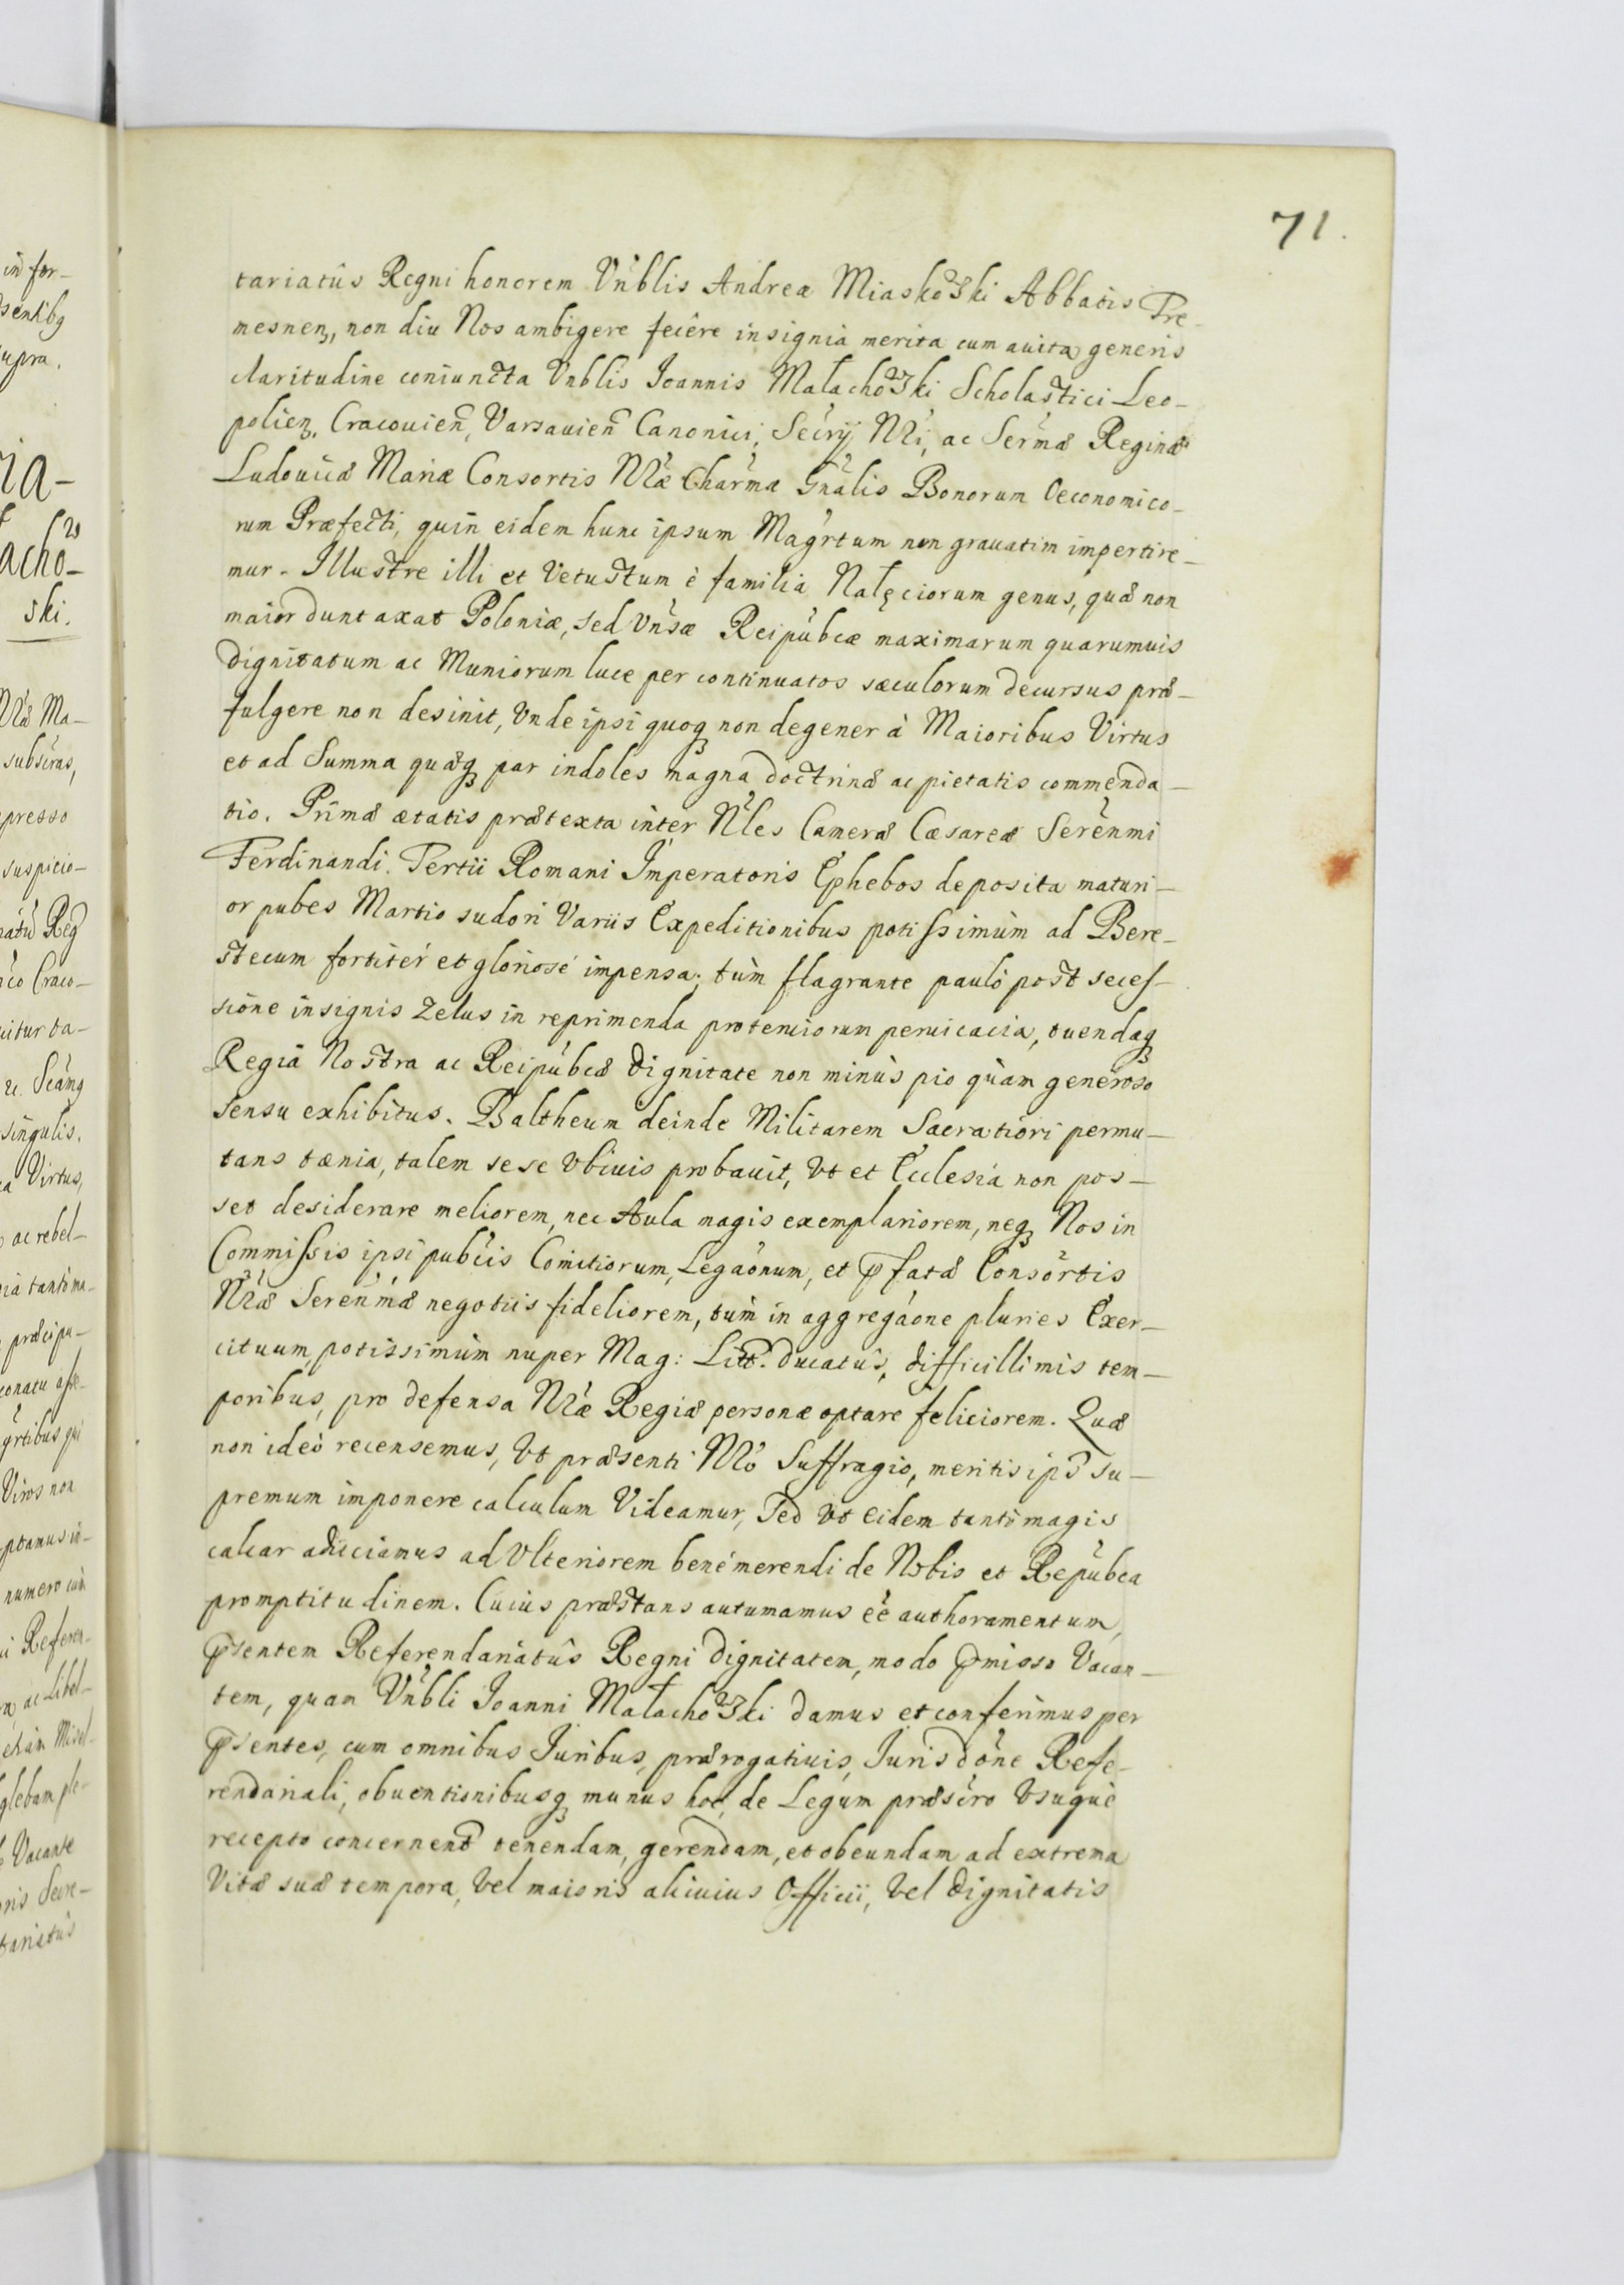 71.
tariatûs Regni honorem Vnblis Andreæ Miaskowski Abbatis Tre-
mesnen, non diu Nos ambigere fecêre insignia merita cum auita generis
claritudine coniuncta Vnblis Ioannis Małachowski Scholastici Leo-
polien, Cracouien, Varsauien Canonici, Secrij Nri, ac Sermæ Reginæ
Ludouicæ Mariæ Consortis Nræ Charmæ Gnalis Bonorum Oeconomico-
rum Præfecti, quin eidem hunc ipsum Magrtum non grauatim impertire-
mur. Illustre illi et Vetustum è familia Nałęciorum genus, quæ non
maior duntaxat Poloniæ, sed Vnsæ Reipubcæ maximarum quarumuis
Dignitatum ac Muniorum luce per continuatos sæculorum decursus præ-
fulgere non desinit, Vnde ipsi quoq non degener à Maioribus Virtus
et ad Summa quæq par indoles magna doctrinæ ac pietatis commenda-
tio. Primæ ætatis prætexta inter Nles Cameræ Cæsareæ Serenmi
Ferdinandi Tertii Romani Imperatoris Ephebos deposita maturi-
or pubes Martio sudori Variis Expeditionibus potissimùm ad Bere-
stecum fortitér et gloriosé impensa; tùm flagrante pauló post seces-
sione insignis Zelus in reprimenda proteruiorum peruicacia, tuendaq
Regiâ Nostra ac Reipubcæ Dignitate non minùs pio quàm generoso
Sensu exhibitus. Baltheum deinde Militarem Sacratiori permu-
tans tænia, talem sese Vbiuis probauit, Vt et Ecclesia non pos-
set desiderare meliorem, nec Aula magis exemplariorem, neq Nos in
Commissis ipsi pubcis Comitiorum, Legaonum, et pfatæ Consortis
Nræ Serenmæ negotiis fideliorem, tùm in aggregaone pluries Exer-
cituum, potissimùm nuper Mag: Litt. Ducatûs, difficillimis tem-
poribus, pro defensa Nræ Regiæ personæ optare feliciorem. Quæ
non ideò recensemus, Vt præsenti Nro Suffragio, meritis ips su-
premum imponere calculum Videamur, Sed Vt eidem tantò magis
calcar adiiciamus ad Vlteriorem bené merendi de Nobis et Repubca
promptitudinem. Cuius præstans autumamus eê authoramentum,
psentem Referendariatûs Regni Dignitatem, modo pmisso Vacan-
tem, quam Vnbli Ioanni Małachowski damus et conferimus per
psentes, cum omnibus Iuribus, prærogatiuis, Iurisdone Refe-
rendariali, obuentionibusq munus hoc, de Legum præscro Vsuquè
recepto concernent tenendam, gerendam, et obeundam ad extrema
Vitæ suæ tempora, Vel maioris alicuius Officii, Vel Dignitatis